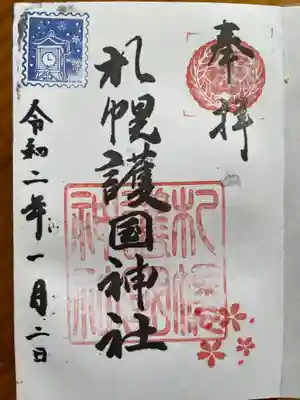 奉拝
札幌護国神社
札幌護国神社
令和二年一月二日